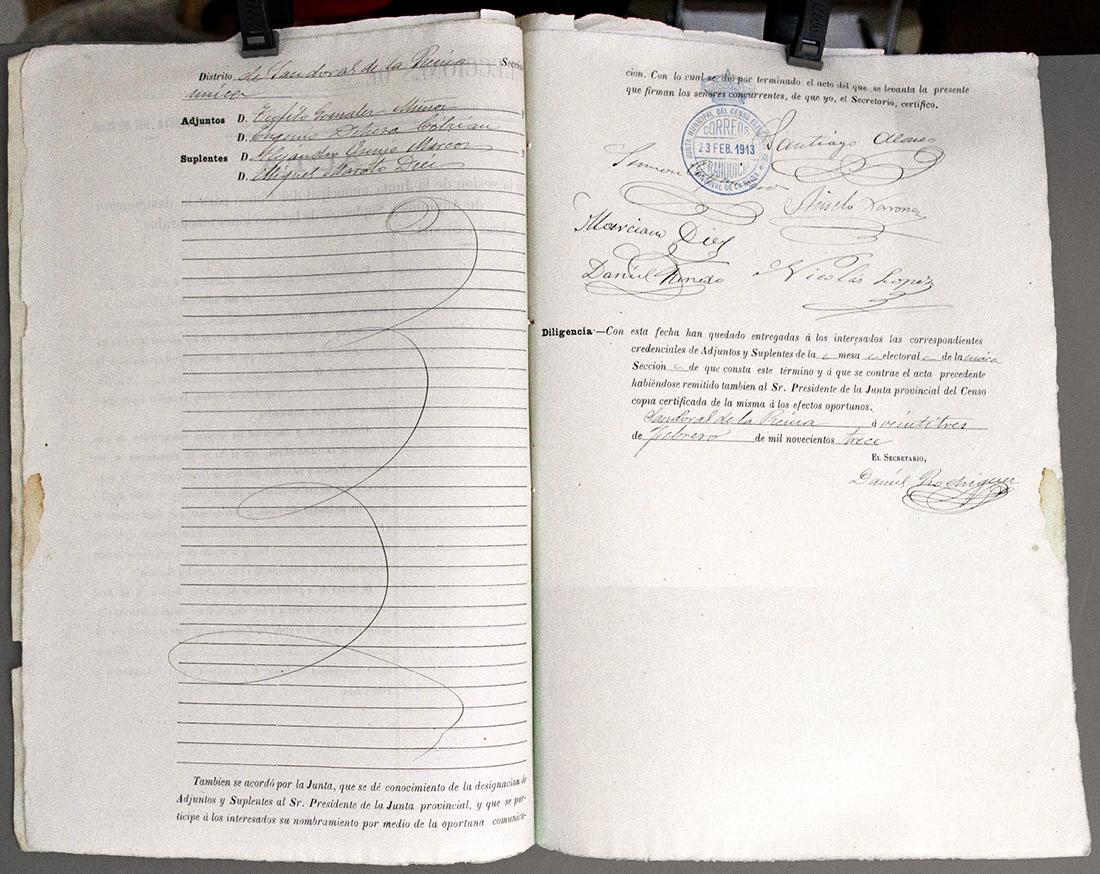 Distrito de Sandoval de la Reina Secció
única
Adjuntos D. Teófilo González Munor y
D. Eugenio Dehesa Cibrian
Suplentes D. Alejandro Marcos y
D. Miguel Maroto Diez
Tambien se acordó por la Junta, que se dé conocimiento de la designacion de
Adjuntos y Suplentes al Sr. Presidente de la Junta provincial, y que se par-
ticipe á los interesados su nombramiento por medio de la oportuna comunica-
cion. Con lo cual se dió por terminado el acto del que se levanta la presente
que firman los señores concurrentes, de que yo, el Secretario, certifico.
JUNTA MUNICIPAL DEL CENSO ELECTORAL DE
CORREOS
23 FEB. 1913
FRANQUICIA
SANDOVAL DE LA REINA
Santiago Alonso
Simon
Marciano Diez
Daniel Renedo
Nicolás Lopez
Diligencia.—Con esta fecha han quedado entregadas á los interesados las correspondientes
credenciales de Adjuntos y Suplentes de la mesa electoral de la única
Sección de que consta este término y á que se contrae el acta precedente
habiéndose remitido tambien al Sr. Presidente de la Junta provincial del Censo
copia certificada de la misma á los efectos oportunos.
Sandoval de la Reina á veintitres
de Febrero de mil novecientos trece
EL SECRETARIO,
Daniel Rodriguez